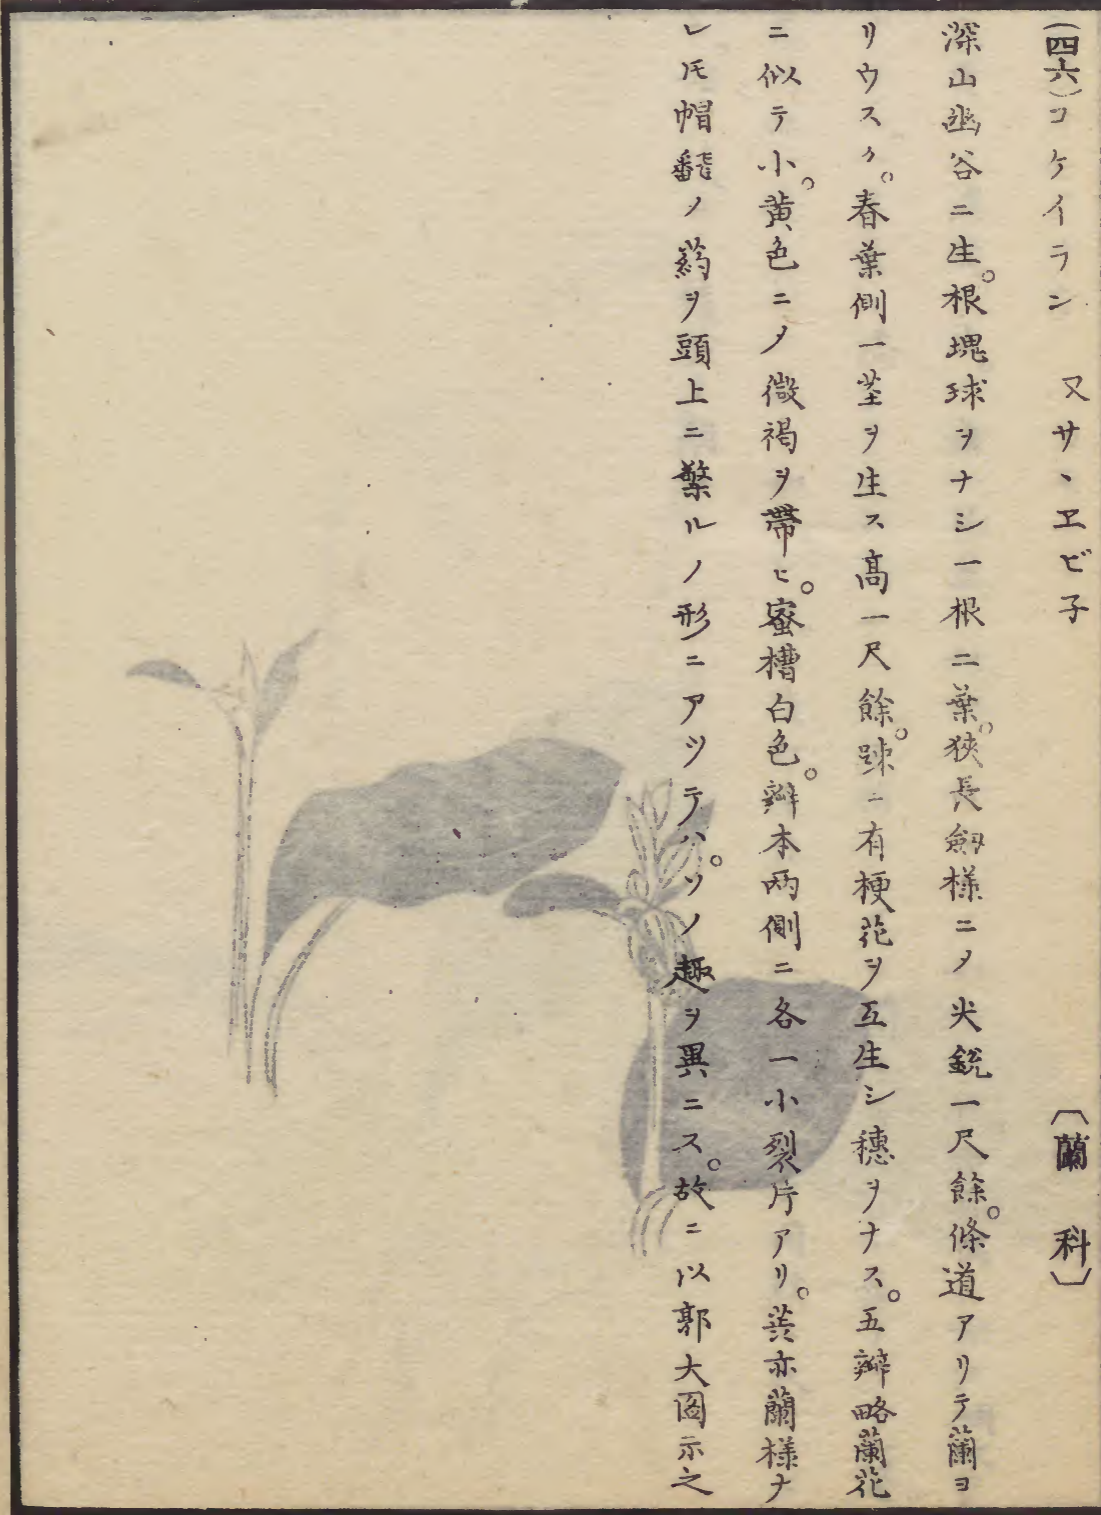 (四六)コケイラン 又サヽヱビ子 〔蘭科〕
深山幽谷ニ生。根塊球ヲナシ一根二葉。狹長劔様ニ〆尖銳一尺餘。條道アリテ蘭ヨ
リウスク。春葉側一莖ヲ生ス高一尺餘。踈ニ有梗花ヲ互生シ穗ヲナス。五瓣略蘭花
ニ似テ小。黄色ニ〆微褐ヲ帶ヒ。蜜槽白色。瓣本兩側ニ各一小裂片アリ。蕋亦蘭様ナ
レ𪜈帽 ノ葯ヲ頭上ニ檠ルノ形ニアツテハ。ソノ趣ヲ異ニス。故ニ以郭大圖示之